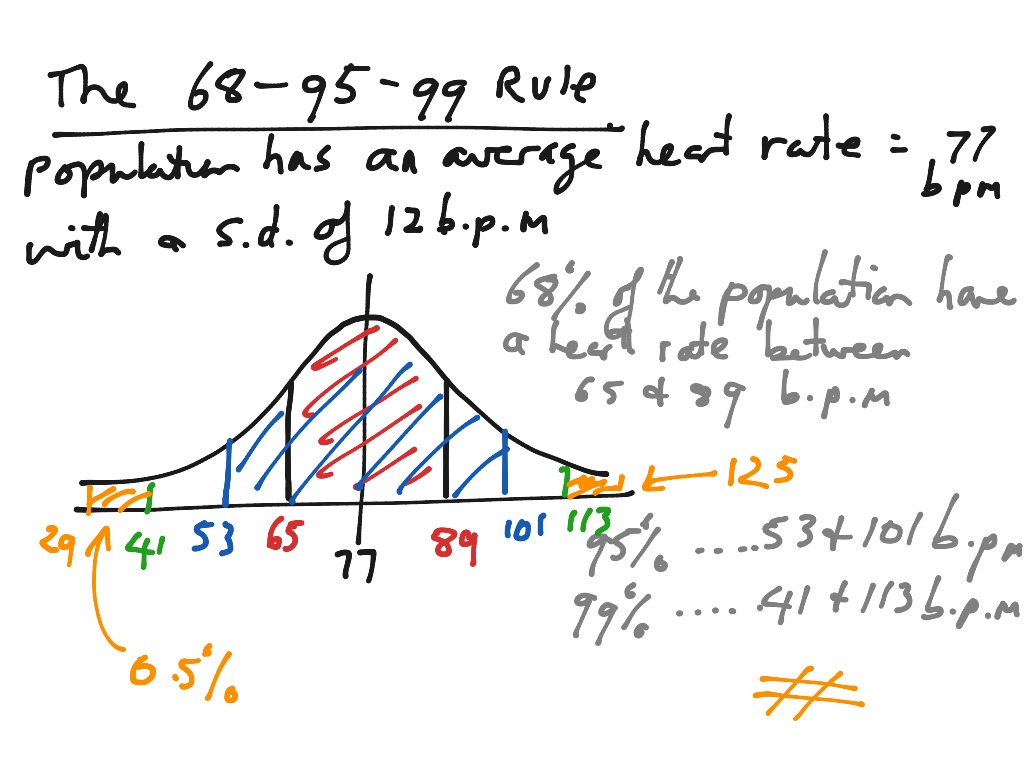 The 68-95-99 Rule
population has an average heart rate = 77
bpm
with a s.d. of 12 b.p.m
68% of the population have
a heart rate between
65 & 89 b.p.m
125
29 41 53 65 77 89 101 113
95% ....53 & 101 b.p.m
99% .... 41 & 113 b.p.m
0.5%